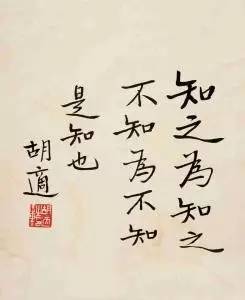 知之為知之
不知為不知
是知也
胡適